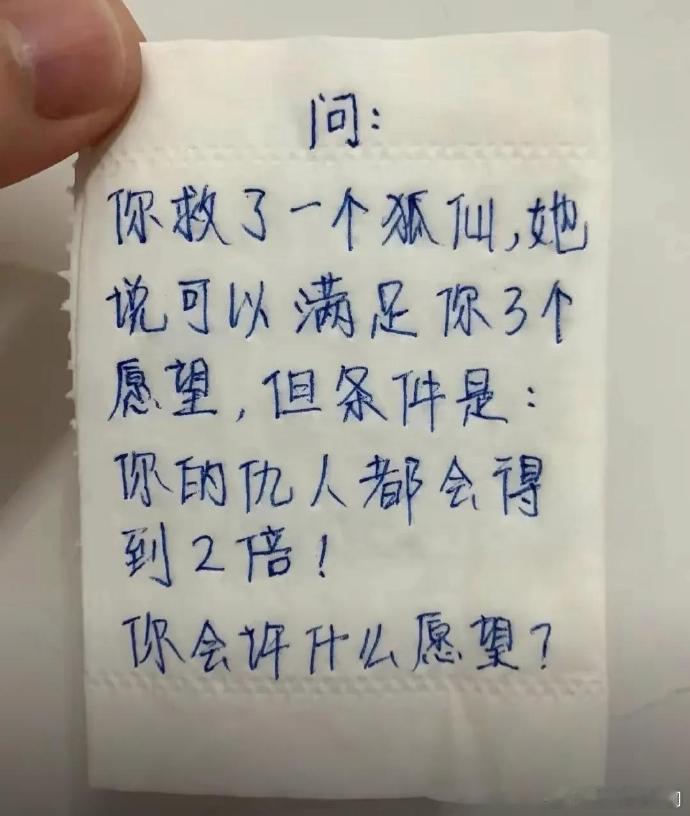 问:
你救了一个狐仙,她
说可以满足你3个
愿望,但条件是:
你的仇人都会得
到2倍!
你会许什么愿望?